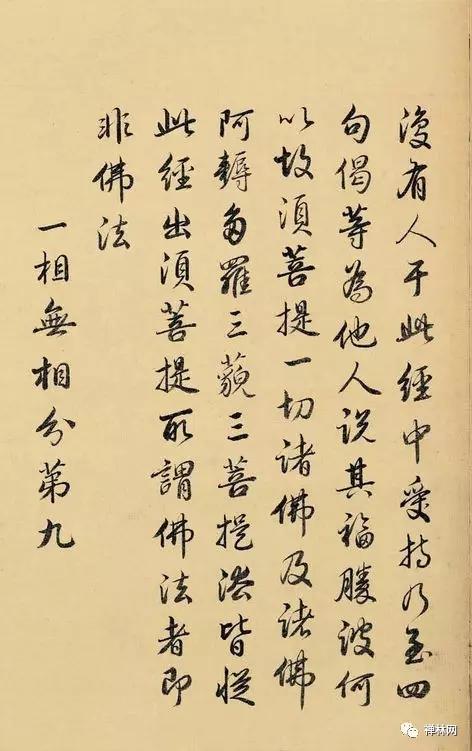 復有人于此經中受持乃至四
句偈等為他人説其福勝彼何
以故須菩提一切諸佛及諸佛
阿耨多羅三藐三菩提法皆從
此經出須菩提所謂佛法者即
非佛法
一相無相分第九
禅林网